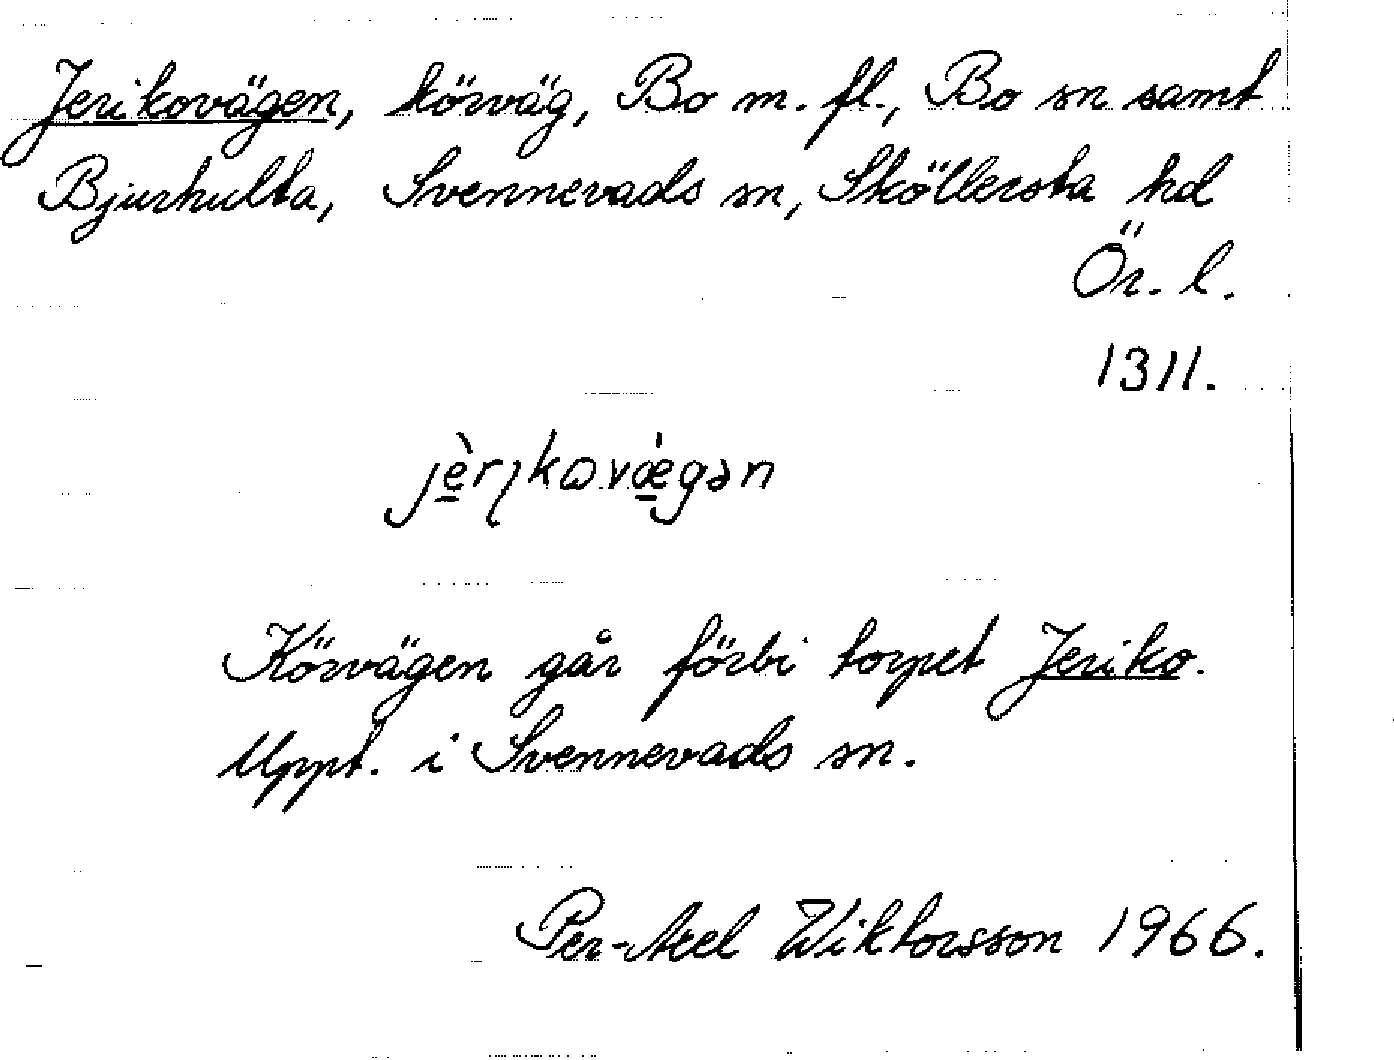 Jerikovägen, körväg, Bo m. fl., Bo sn samt
Bjurhulta, Svennevads sn, Sköllersta hd
Ör. l.
1311.
jè̱rɪkωvǽ̱gən
Körvägen går förbi torpet Jeriko.
Uppt. i Svennevads sn.
Per-Axel Wiktorsson 1966.